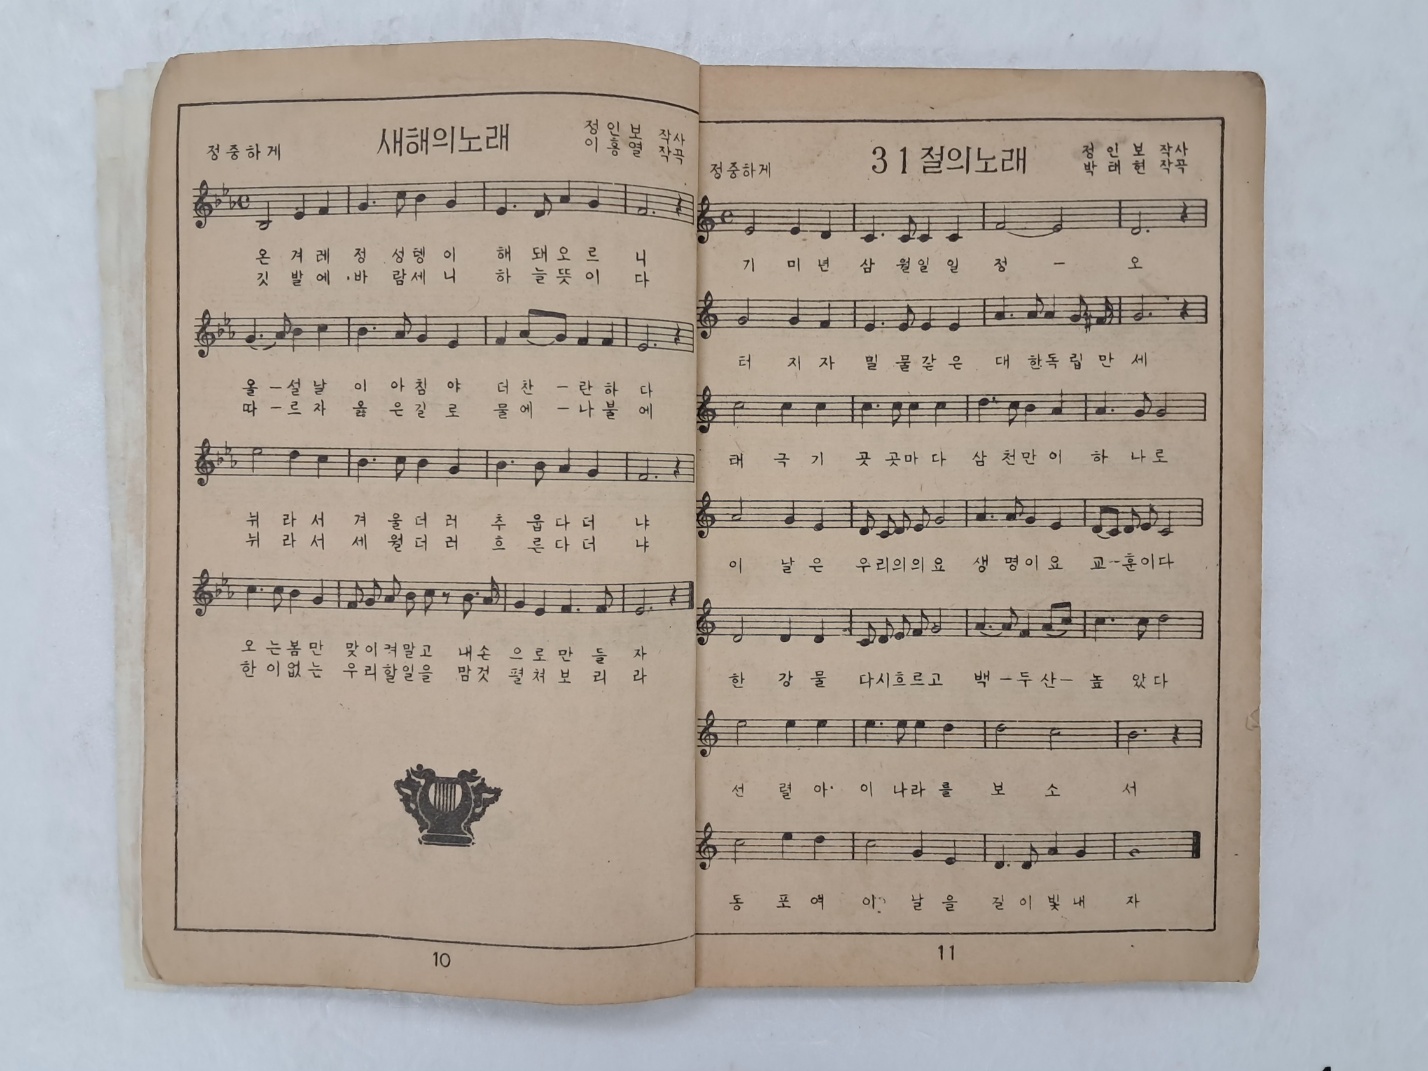 새해의노래
정중하게
정인보 작사
이흥열 작곡
온 겨레 정 성뎅이 해 돼오르 니
깃 발에 바 람세니 하 늘뜻이 다
올-설날 이 아침야 더찬-란하 다
따-르자 옳 은길로 물에-나불 에
뉘 라서 겨 울더러 추 웁다더 냐
뉘 라서 세 월더러 흐 른다더 냐
오 는봄만 맞이켜말고 내손 으로만 들 자
한 이없는 우리할일을 맘껏 펼쳐보 리 라
10
31절의노래
정중하게
정인보 작사
박태현 작곡
기 미년 삼 월일일 정 - 오
터 지자 밀 물같은 대 한독립 만 세
태 극기 곳 곳마다 삼 천만이 하 나로
이 날은 우리의의요 생 명이요 교-훈이다
한 강물 다시흐르고 백-두산- 높 았다
선 렬아 이 나라를 보 소 서
동 포여 이 날을 길이빛내 자
11